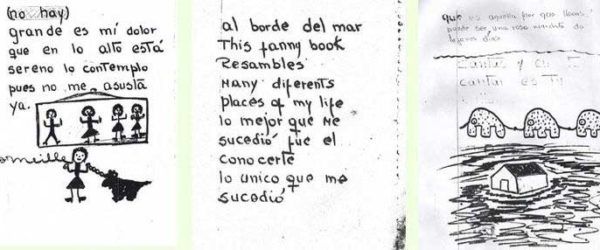 (no hay)
grande es mi dolor
que en lo alto está
sereno lo contemplo
pues no me asusta
ya.
al borde del mar
This fanny book
Resambles
Many diferents
places of my life
lo mejor que Me
sucedió fue el
conocerte
lo unico que me
sucedió
que es aquella por que lloras
puede ser una rosa
cantar es